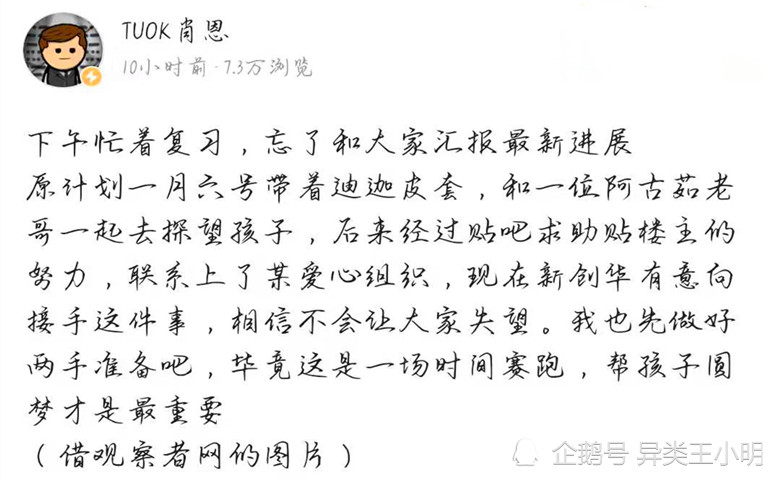 TUOK肖恩
10小时前·7.3万浏览
下午忙着复习，忘了和大家汇报最新进展
原计划一月六号带着迪迦皮套，和一位阿古茹老
哥一起去探望孩子，后来经过贴吧求助贴楼主的
努力，联系上了某爱心组织，现在新创华有意向
接手这件事，相信不会让大家失望。我也先做好
两手准备吧，毕竟这是一场时间赛跑，帮孩子圆
梦才是最重要
（借观察者网的图片）
企鹅号 异类王小明